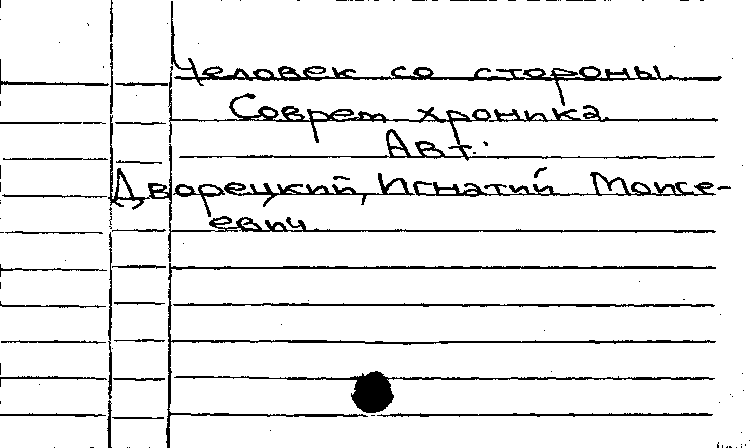 Человек со стороны.
Соврем хроника.
Авт.:
Дворецкий, Игнатий Моисе-
евич.